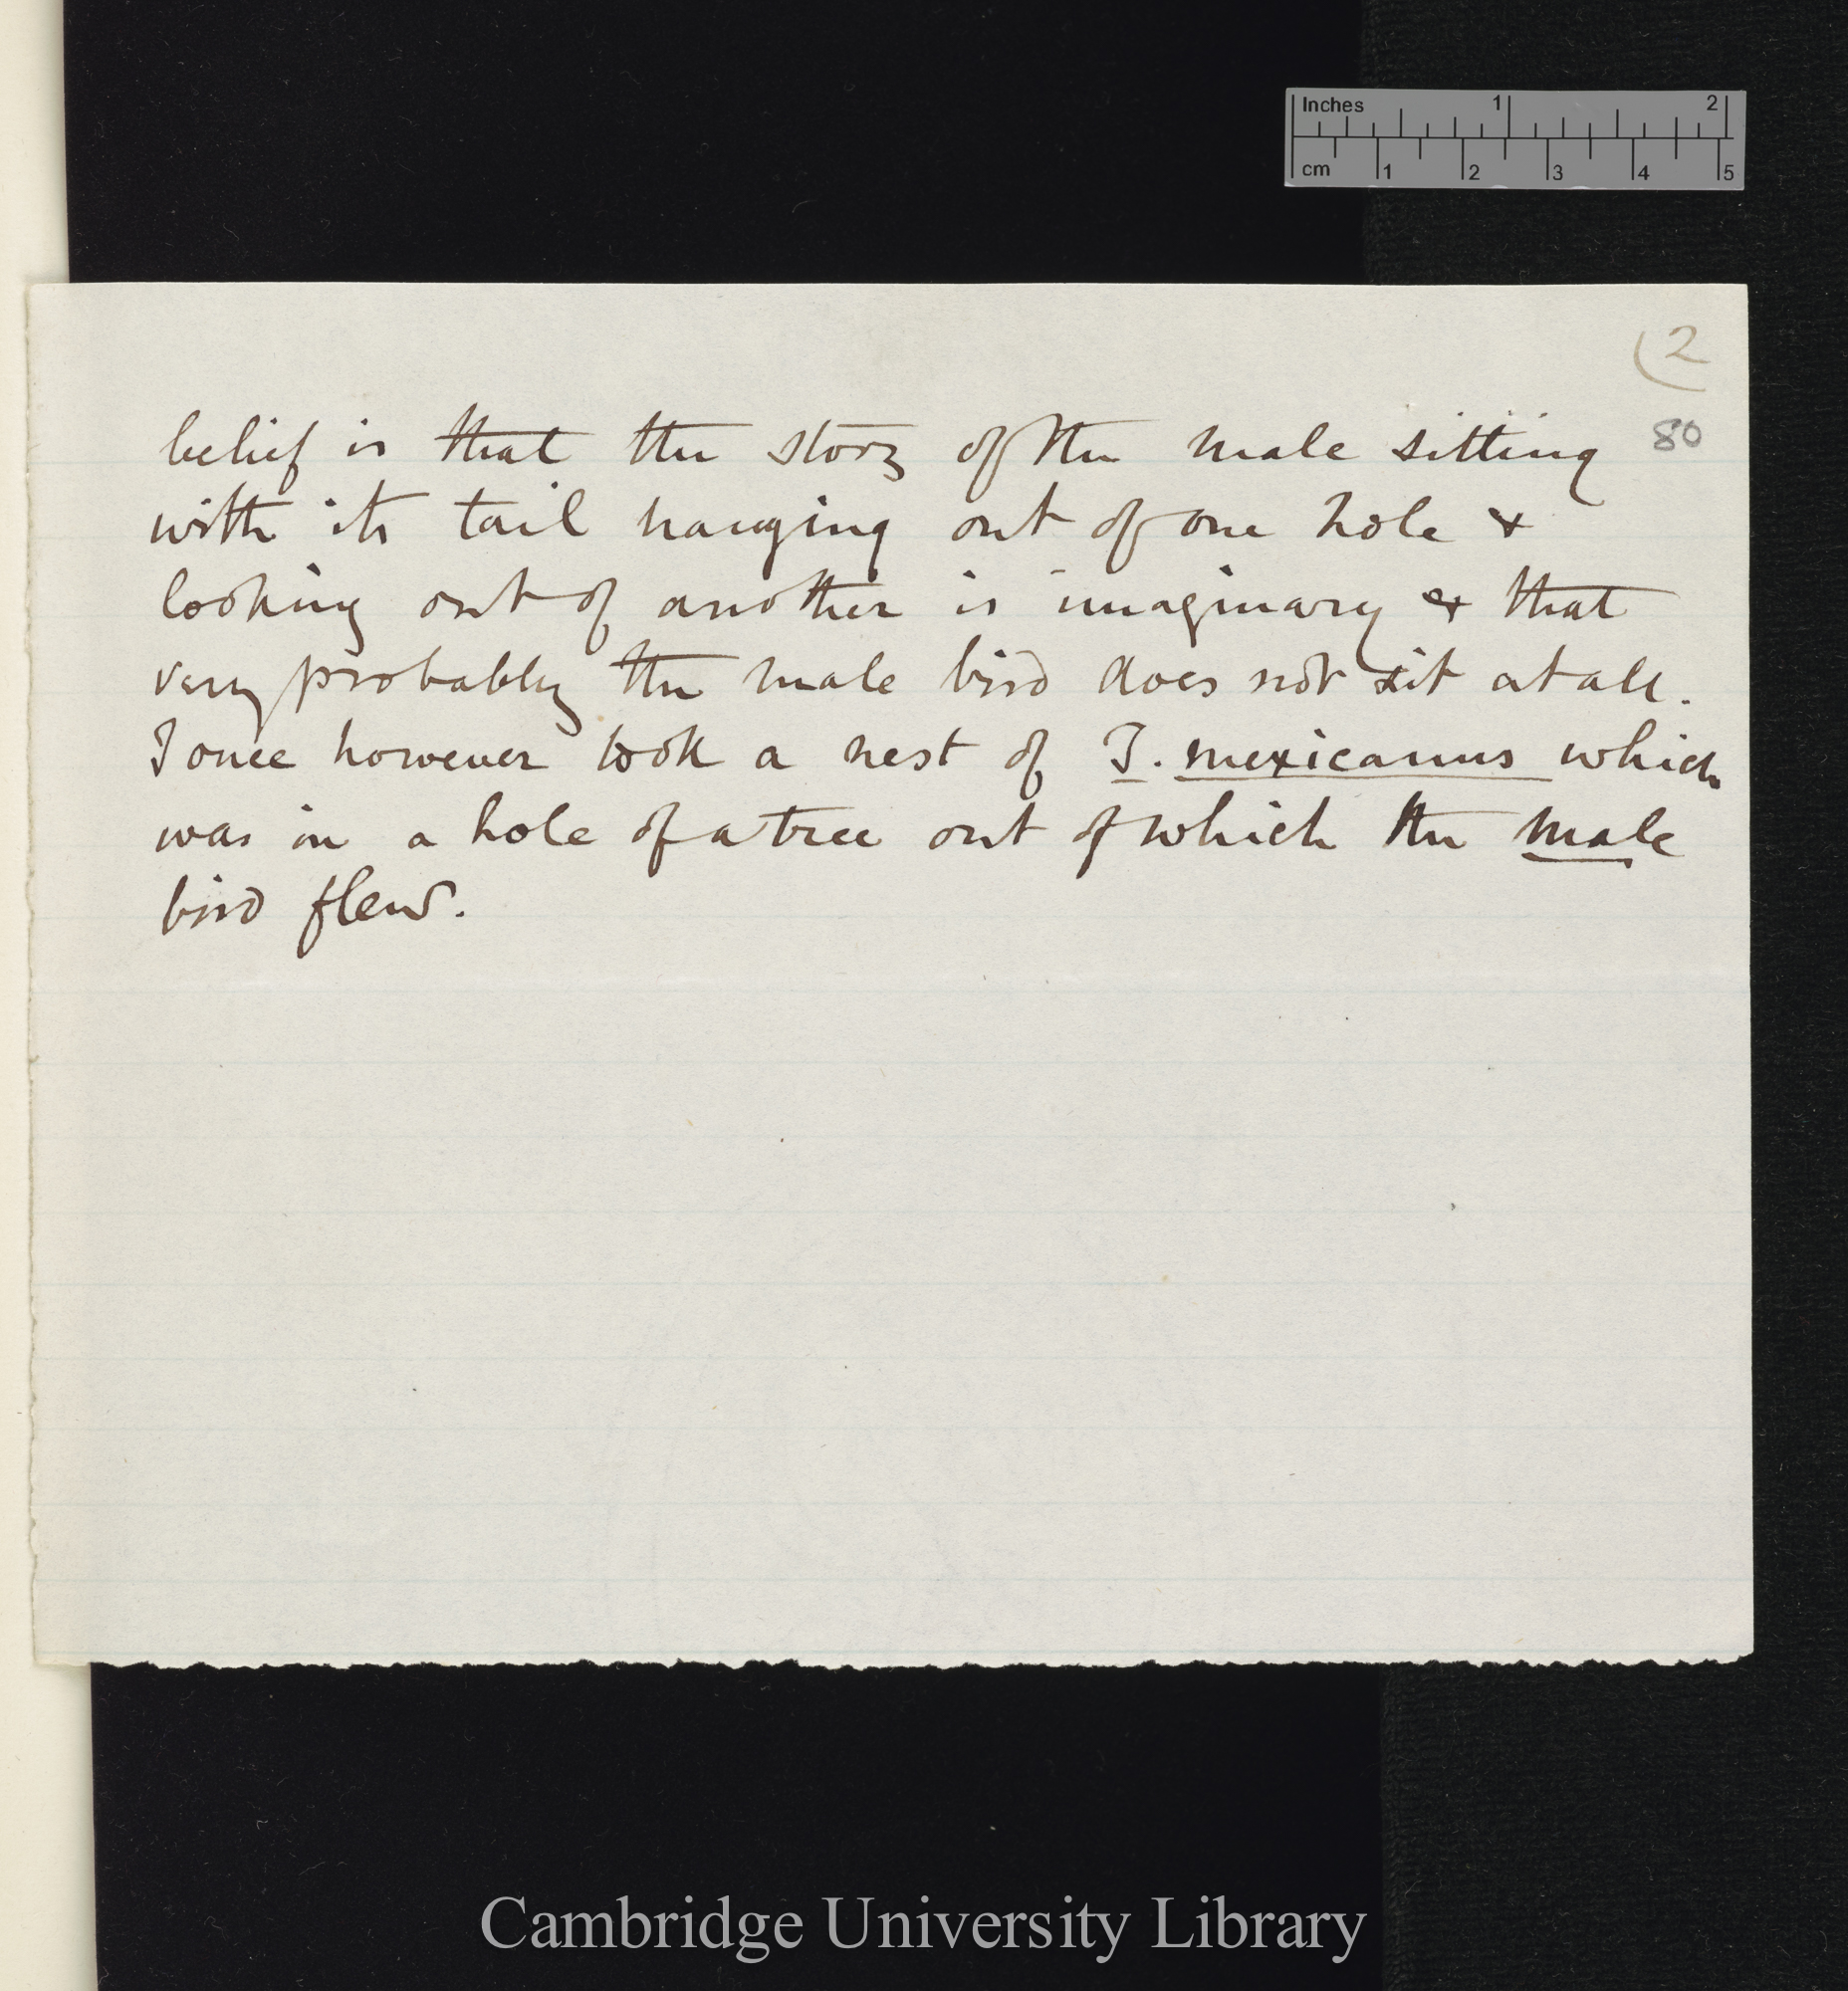 Inches 1 2
cm 1 2 3 4 5
(2
80
belief is that the story of the male sitting
with its tail hanging out of one hole &
looking out of another is imaginary & that
very probably the male bird does not sit at all.
I once however took a nest of T. mexicanus which
was in a hole of a tree out of which the male
bird flew.
Cambridge University Library